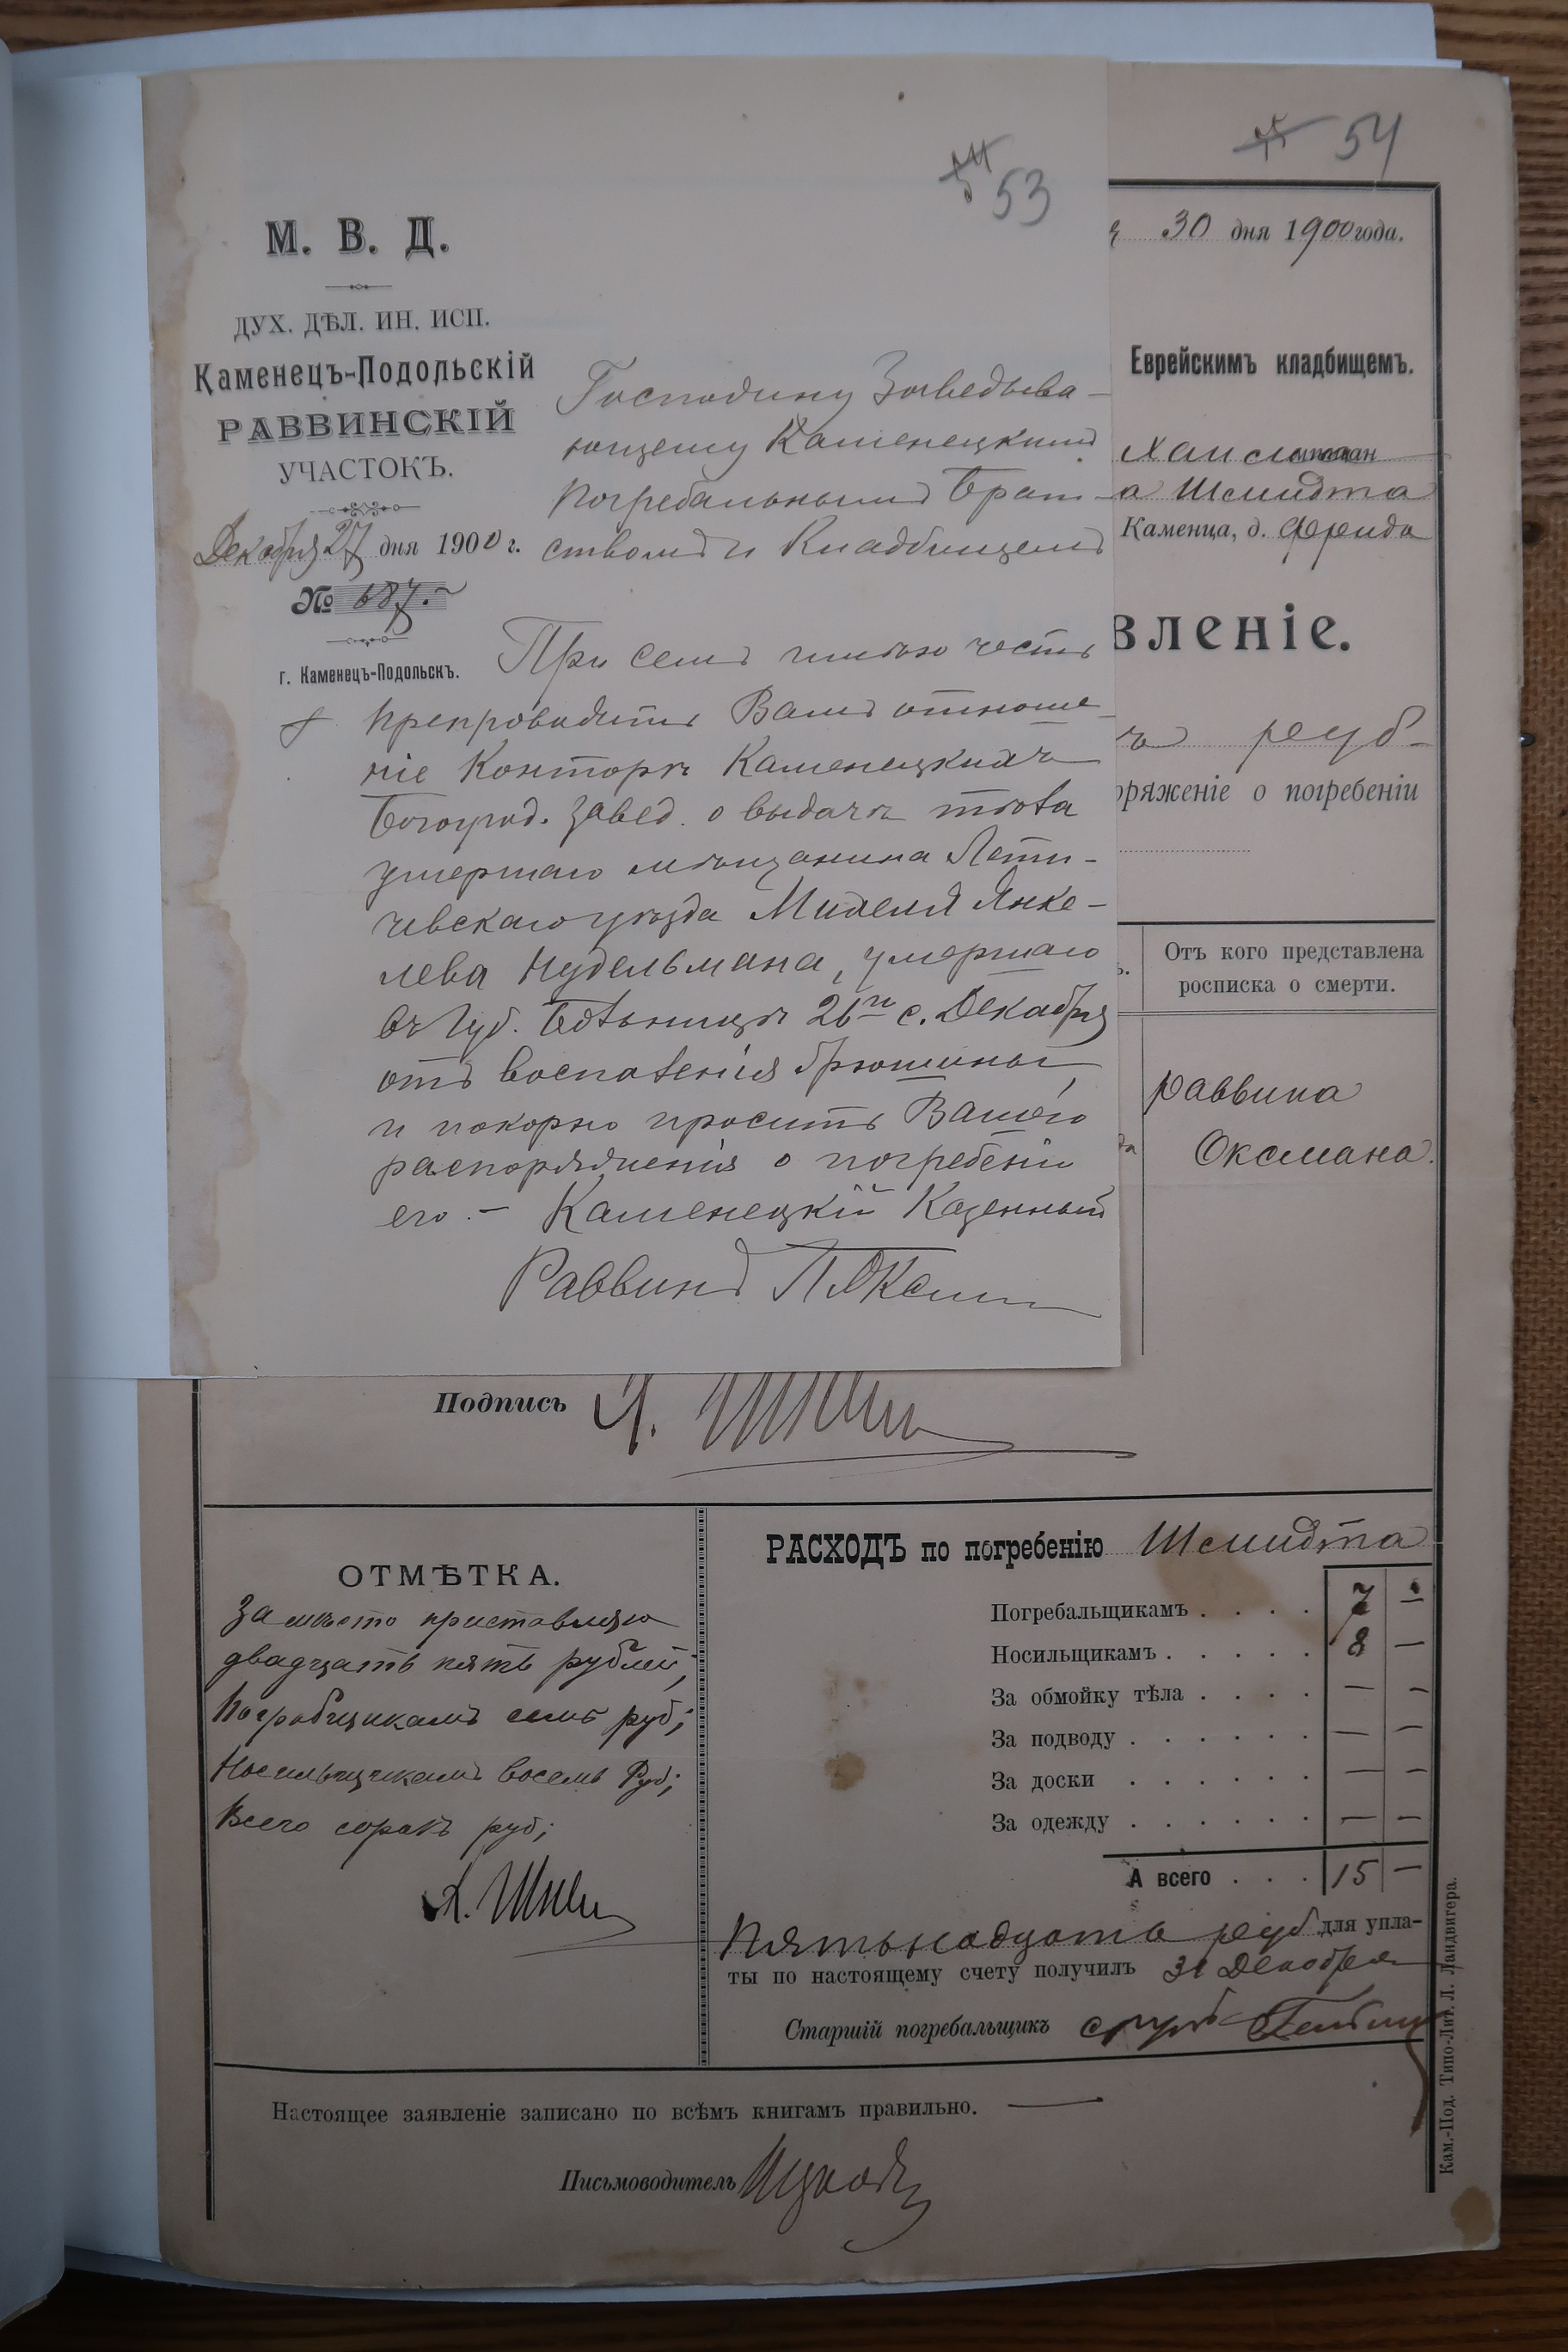 53
М. В. Д.
ДУХ. ДѢЛ. ИН. ИСП.
Каменецъ-Подольскій
РАВВИНСКІЙ
УЧАСТОКЪ.
Декабря 27 дня 1900 г.
№ 687.
г. Каменецъ-Подольскъ.
Господину Заведыва-
ющему Каменецкимъ
Погребальнымъ Брат-
ствомъ и Кладбищемъ
При семъ имѣю честь
препроводить Вамъ отноше-
ніе Конторы Каменецкихъ
Богоугод. Завед. о выдачѣ тѣла
умершаго мѣщанина Лети-
чевскаго уѣзда Михеля Янке-
лева Нудельмана, умершаго
въ Губ. Больницѣ 26го с. Декабря
отъ воспаленія брюшины
и покорно просить Вашего
распоряженія о погребеніи
его. – Каменецкій Казенный
Раввинъ
54
30 дня 1900 года.
Еврейскимъ кладбищемъ.
а Шмидта
Каменца, д. Френда
вленіе.
руб
оряженіе о погребеніи
Отъ кого представлена
росписка о смерти.
раввина
Оксмана.
Подпись
ОТМѢТКА.
За мѣсто
двадцать пять рублей,
Погребщикамъ семь руб;
Носильщикамъ восемь Руб;
Всего сорокъ руб;
РАСХОДЪ по погребенію Шмидта
Погребальщикамъ . . . . 7 –
Носильщикамъ . . . . . 8 —
За обмойку тѣла . . . . — —
За подводу . . . . . . — —
За доски . . . . . . — —
За одежду . . . . . . — —
А всего . . . 15 —
Пятьнадцать руб для упла-
ты по настоящему счету получилъ 31 Декабря
Старшій погребальщикъ
Настоящее заявленіе записано по всѣмъ книгамъ правильно.
Письмоводитель
Кам.-Под. Типо-Лит. Л. Ландвигера.